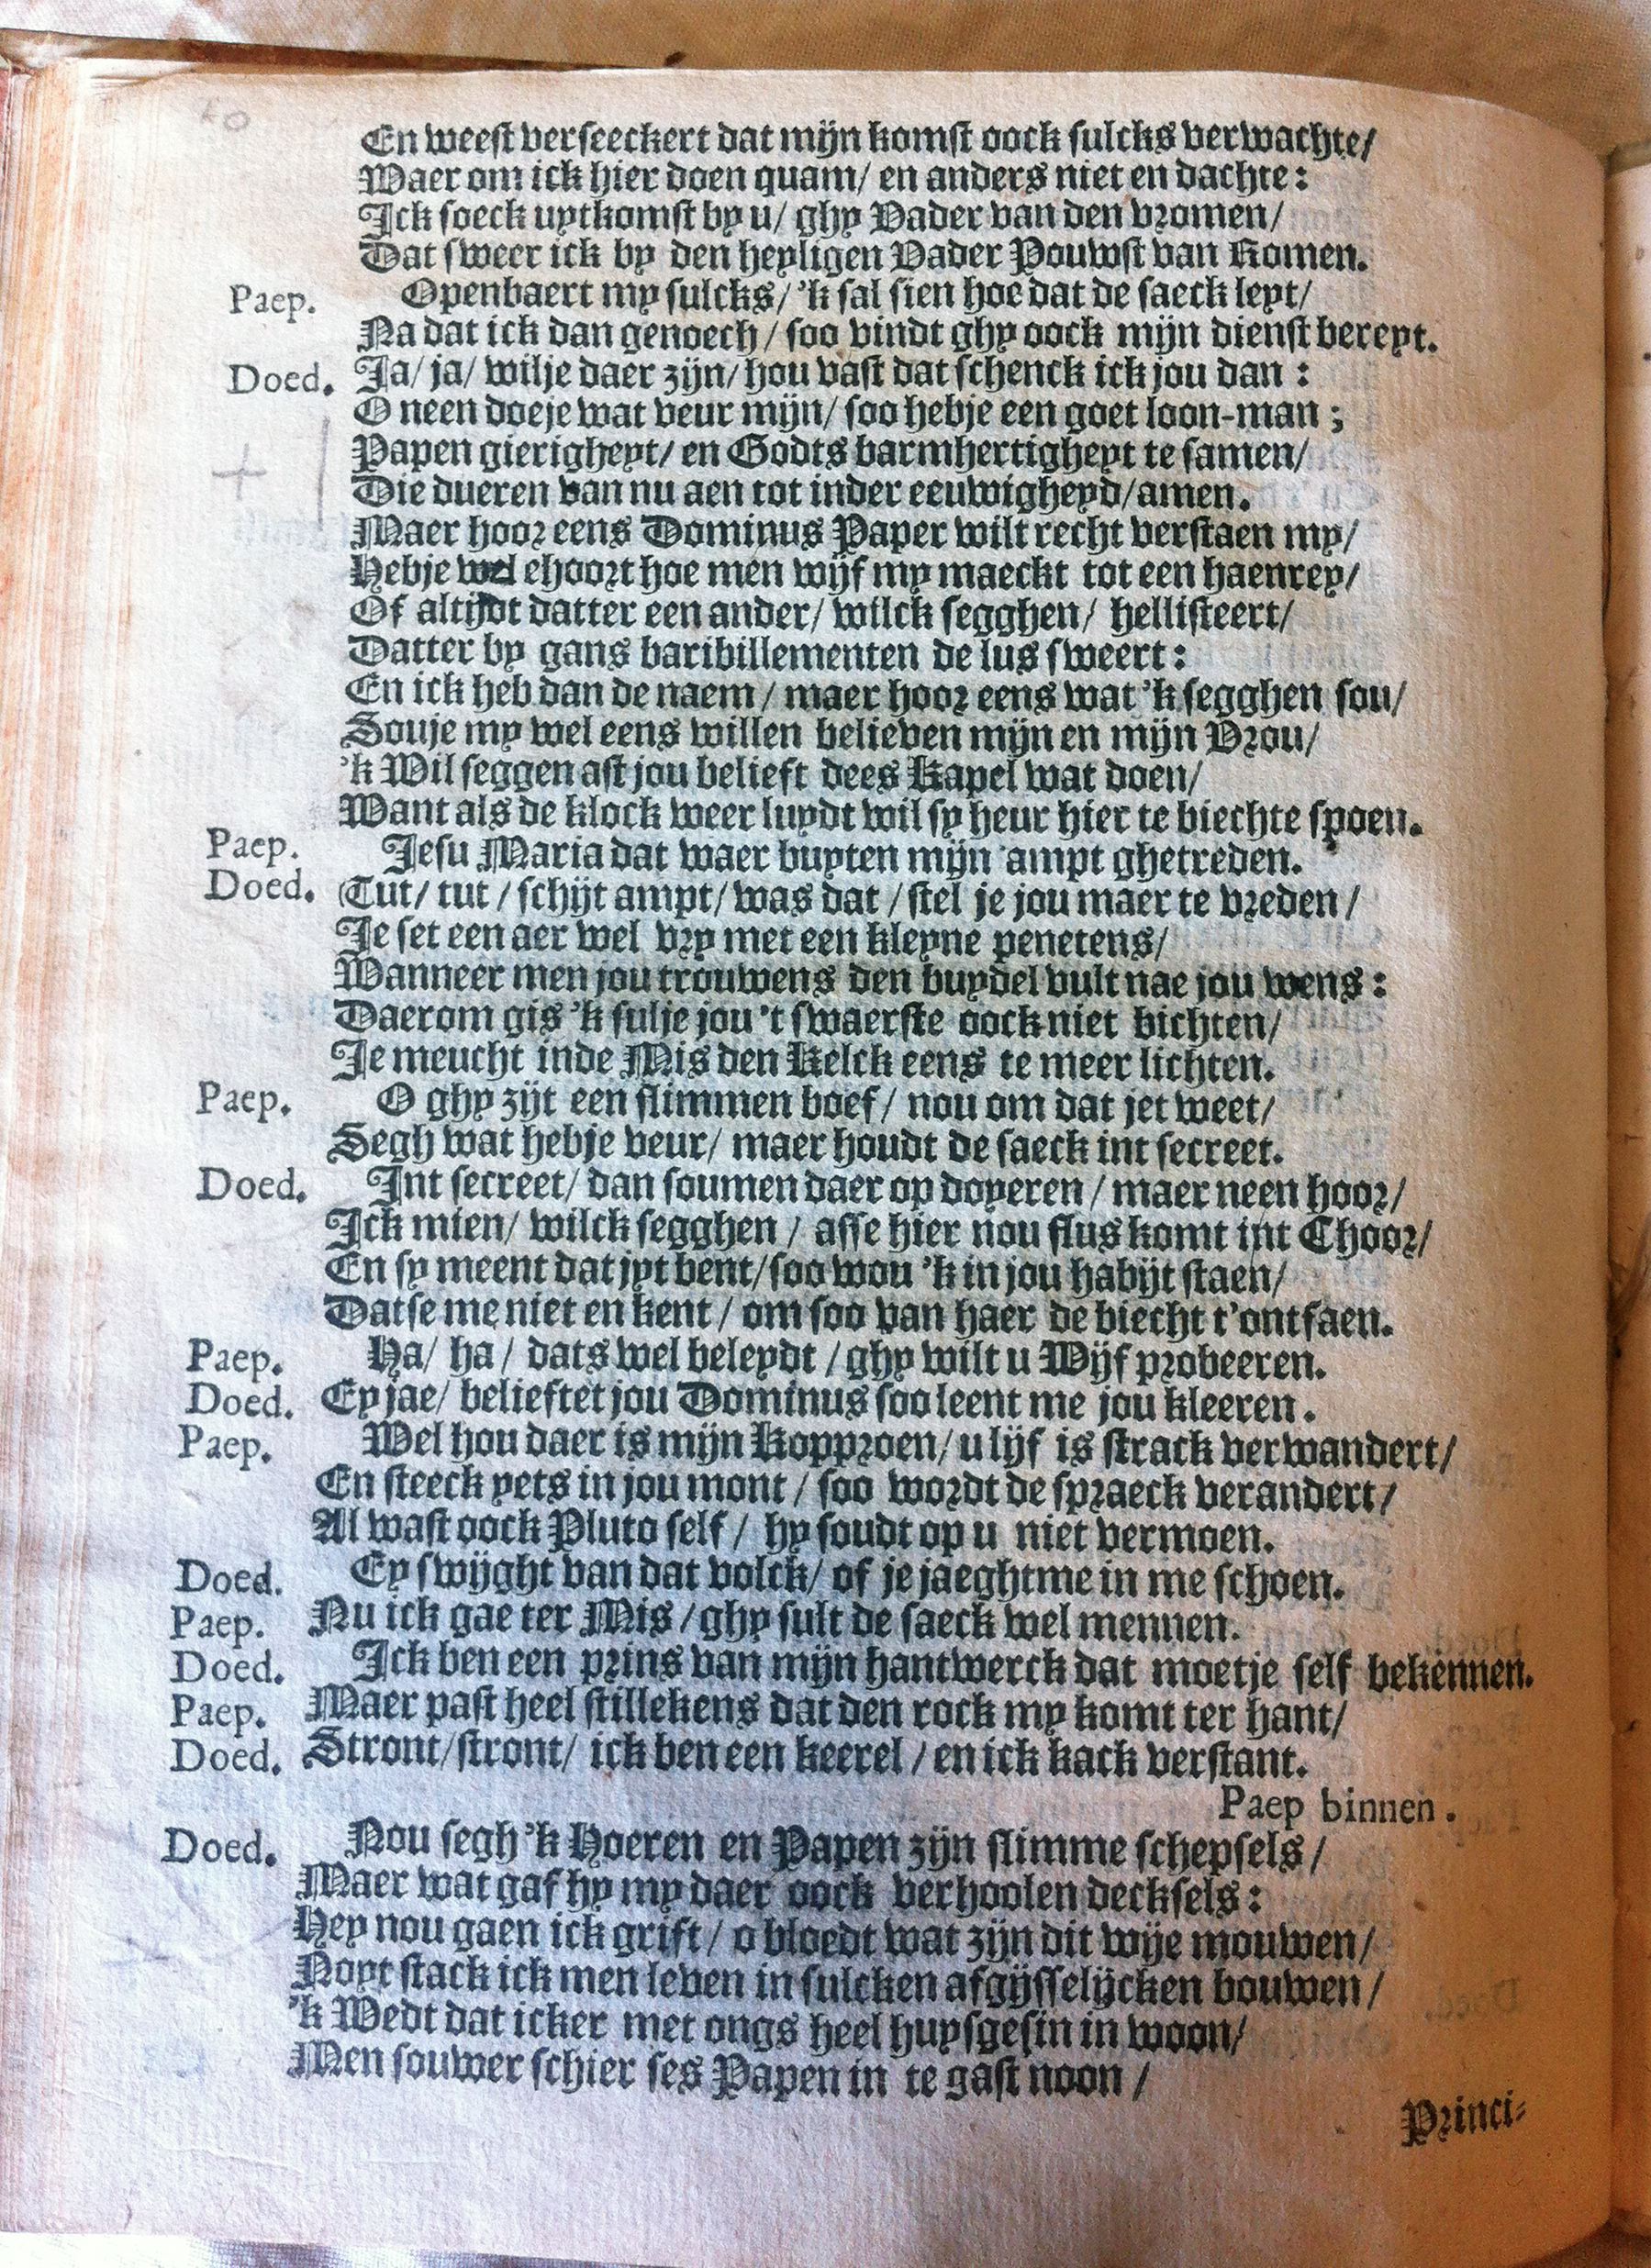 40
En weest verseeckert dat mijn komst oock sulcks verwachte/
Waer om ick hier doen quam/ en anders niet en dachte:
Ick soeck uytkomst by u/ ghy Vader van den vromen/
Dat sweer ick by den heyligen Vader Pouwst van Romen.
Paep. Openbaert my sulcks/ 'k sal sien hoe dat de saeck leyt/
Na dat ick dan genoech/ soo vindt ghy oock mijn dienst bereyt.
Doed. Ja/ ja/ wilje daer zijn/ hou vast dat schenck ick jou dan:
O neen doeje wat veur mijn/ soo hebje een goet loon-man;
Papen gierigheyt/ en Godts barmhertigheyt te samen/
Die dueren van nu aen tot inder eeuwigheyd/amen.
Maer hoor eens Dominus Paper wilt recht verstaen my/
Hebje wel ehoort hoe men wijf my maeckt tot een haenrey/
Of altijdt datter een ander/ wilck segghen/ hellisteert/
Datter by gans baribillementen de lus sweert:
En ick heb dan de naem/ maer hoor eens wat 'k segghen sou/
Souje my wel eens willen believen mijn en mijn Vrou/
'k Wil seggen ast jou belieft dees Kapel wat doen/
Want als de klock weer luydt wil sy heur hier te biechte spoen.
Paep. Jesu Maria dat waer buyten mijn ampt ghetreden.
Doed. Tut/ tut/ schijt ampt/ was dat/ stel je jou maer te vreden/
Je set een aer wel vry met een kleyne penetens/
Wanneer men jou trouwens den buydel vult nae jou wens:
Daerom gis 'k sulje jou 't swaerste oock niet bichten/
Je meucht inde Mis den Kelck eens te meer lichten.
Paep. O ghy zijt een slimmen boef/ nou om dat jet weet/
Segh wat hebje veur/ maer houdt de saeck int secreet.
Doed. Int secreet/ dan soumen daer op doyeren/ maer neen hoor/
Ick mien/ wilck segghen/ asse hier nou flus komt int Choor/
En sy meent dat jyt bent/ soo wou 'k in jou habijt staen/
Datse me niet en kent/ om soo van haer de biecht t'ontfaen.
Paep. Ha/ ha/ dats wel beleydt/ ghy wilt u Wijf probeeren.
Doed. Ey jae/ belieftet jou Dominus soo leent me jou kleeren.
Paep. Wel hou daer is mijn Kopproen/ u lijf is strack verwandert/
En steeck yets in jou mont/ soo wordt de spraeck verandert/
Al wast oock Pluto self/ hy soudt op u niet vermoen.
Doed. Ey swijght van dat volck/ of je jaeghtme in me schoen.
Paep. Nu ick gae ter Mis/ ghy sult de saeck wel mennen.
Doed. Ick ben een prins van mijn hantwerck dat moetje self bekennen.
Paep. Maer past heel stillekens dat den rock my komt ter hant/
Doed. Stront/ stront/ ick ben een keerel/ en ick kack verstant.
Paep binnen.
Doed. Nou segh 'k Hoeren en Papen zijn slimme schepsels/
Maer wat gaf hy my daer oock verhoolen decksels:
Hey nou gaen ick grift/ o bloedt wat zijn dit wije mouwen/
Noyt stack ick men leven in sulcken afgijsselijcken bouwen/
'k Wedt dat icker met ongs heel huysgesin in woon/
Men souwer schier ses Papen in te gast noon/
Princi-